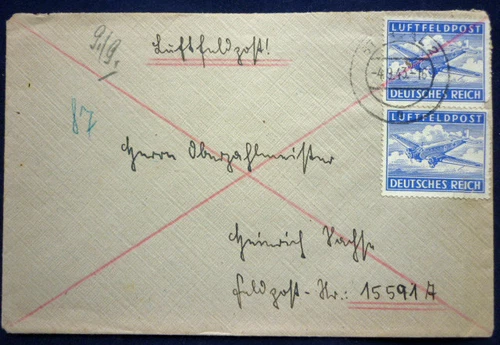 9./9.
Luftfeldpost!
LUFTFELDPOST
DEUTSCHES REICH
LUFTFELDPOST
DEUTSCHES REICH
87
Herrn Oberzahlmeister
Heinrich Sachse
Feldpost-Nr.: 15591 A